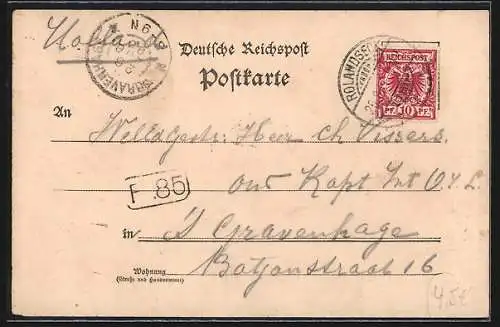 Holland
Deutsche Reichspost
Postkarte
REICHSPOST
10 PF 10
ROLANDSECK
GRAVENHAGE
An Welledgestr. Heer Ch Vissers.
F.85
oud Kapt Int O.I.L.
in 's Gravenhage
Wohnung
(Straße und Hausnummer)
Batjanstraat 16